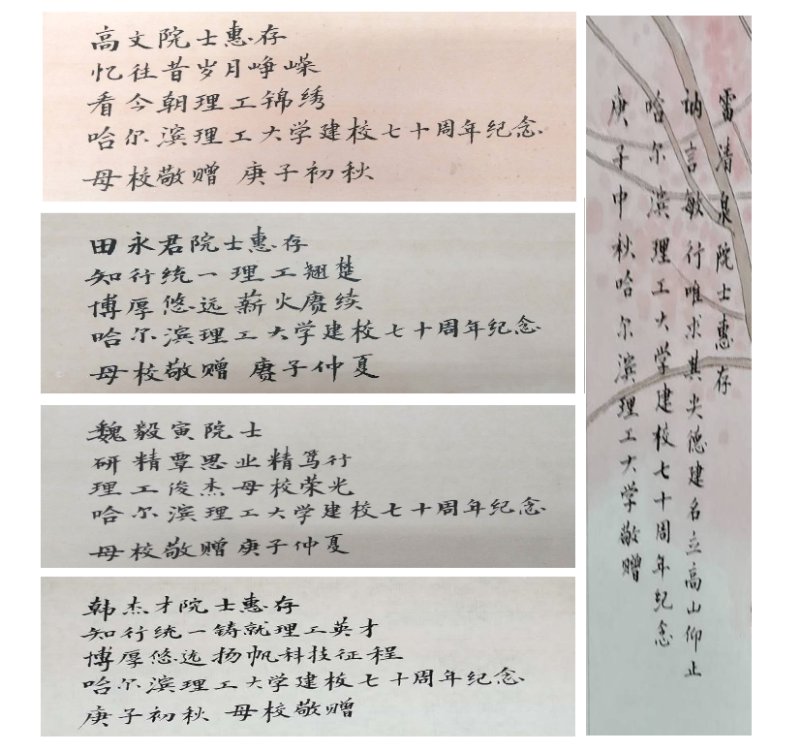 高文院士惠存
忆往昔岁月峥嵘
看今朝理工锦绣
哈尔滨理工大学建校七十周年纪念
母校敬赠 庚子初秋
田永君院士惠存
知行统一理工翘楚
博厚悠远薪火赓续
哈尔滨理工大学建校七十周年纪念
母校敬赠 赓子仲夏
魏毅寅院士
研精覃思业精笃行
理工俊杰母校荣光
哈尔滨理工大学建校七十周年纪念
母校敬赠 庚子仲夏
韩杰才院士惠存
知行统一铸就理工英才
博厚悠远扬帆科技征程
哈尔滨理工大学建校七十周年纪念
庚子初秋 母校敬赠
雷清泉院士惠存
讷言敏行唯求其德建名立高山仰止
哈尔滨理工大学建校七十周年纪念
庚子中秋哈尔滨理工大学敬赠